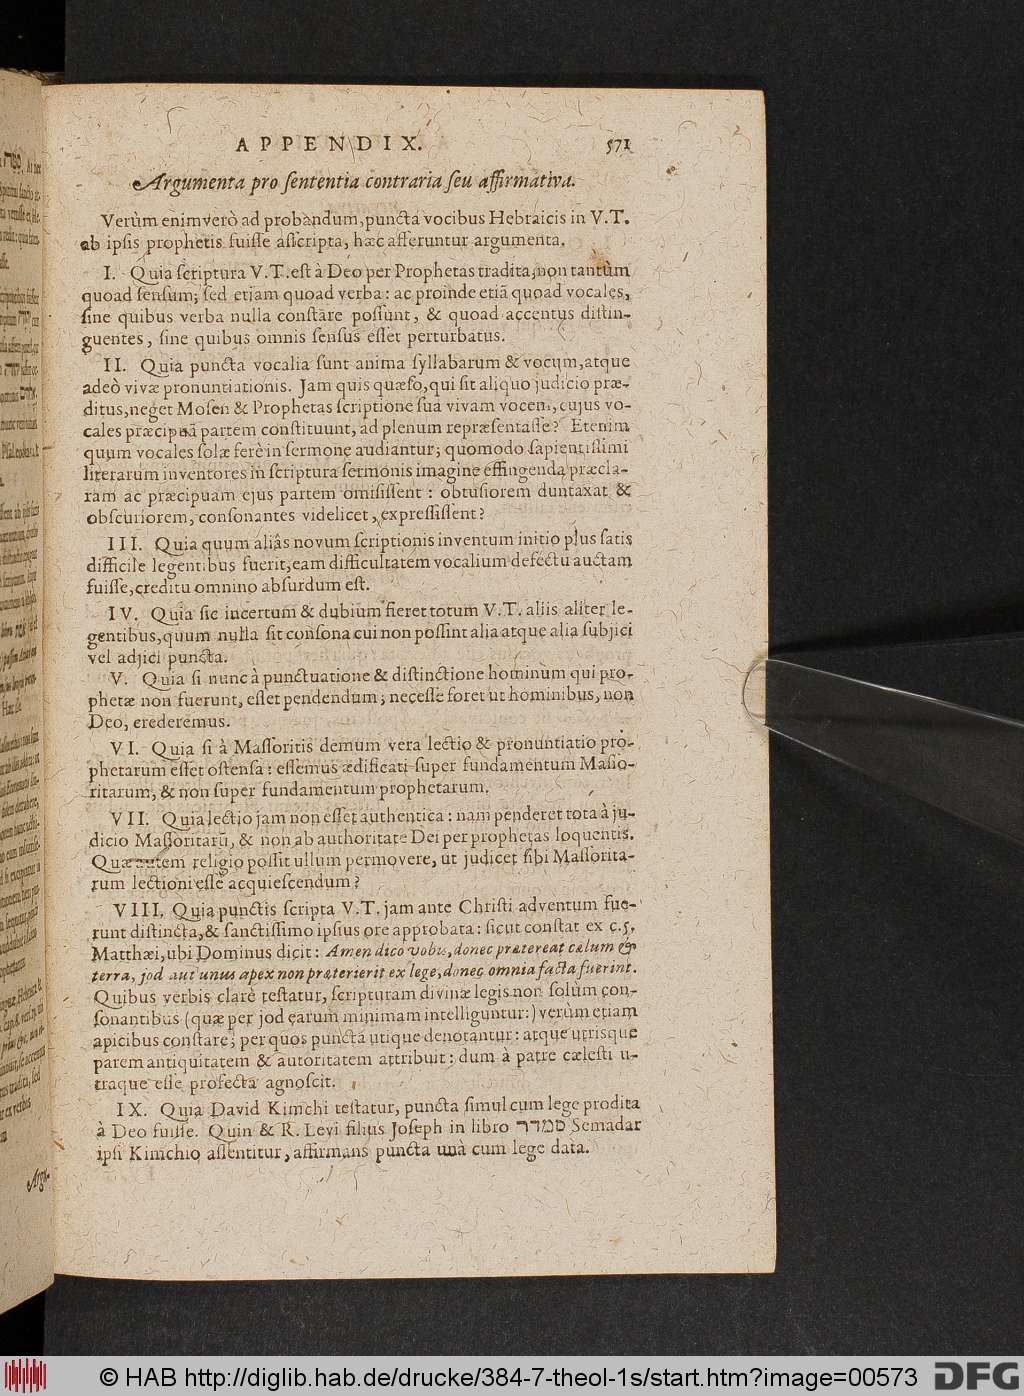 APPENDIX. 571
Argumenta pro sententia contraria seu affirmativa.
Verùm enimverò ad probandum, puncta vocibus Hebraicis in V. T.
ab ipsis prophetis fuisse asscripta, hæc afferuntur argumenta.
I. Quia scriptura V. T. est à Deo per Prophetas tradita, non tantùm
quoad sensum; sed etiam quoad verba: ac proinde etiã quoad vocales,
sine quibus verba nulla constare possunt, & quoad accentus distin-
guentes, sine quibus omnis sensus esset perturbatus.
II. Quia puncta vocalia sunt anima syllabarum & vocum, atque
adeò vivæ pronuntiationis. Jam quis quæso, qui sit aliquo judicio præ-
ditus, neget Mosen & Prophetas scriptione sua vivam vocem, cujus vo-
cales præcipuã partem constituunt, ad plenum repræsentasse? Etenim
quum vocales solæ ferè in sermone audiantur; quomodo sapientissimi
literarum inventores in scriptura sermonis imagine effingenda præcla-
ram ac præcipuam ejus partem omisissent: obtusiorem duntaxat &
obscuriorem, consonantes videlicet, expressissent?
III. Quia quum aliâs novum scriptionis inventum initio plus satis
difficile legentibus fuerit, eam difficultatem vocalium defectu auctam
fuisse, creditu omnino absurdum est.
IV. Quia sic incertum & dubium fieret totum V. T. aliis aliter le-
gentibus, quum nulla sit consona cui non possint alia atque alia subjici
vel adjici puncta.
V. Quia si nunc à punctuatione & distinctione hominùm qui pro-
phetæ non fuerunt, esset pendendum; necesse foret ut hominibus, non
Deo, crederemus.
VI. Quia si à Massoritis demum vera lectio & pronuntiatio pro-
phetarum esset ostensa: essemus ædificati super fundamentum Masso-
ritarum, & non super fundamentum prophetarum.
VII. Quia lectio jam non esset authentica: nam penderet tota à ju-
dicio Massoritarũ, & non ab authoritate Dei per prophetas loquentis.
Quæ autem religio possit ullum permovere, ut judicet sibi Massorita-
rum lectioni esse acquiescendum?
VIII. Quia punctis scripta V. T. jam ante Christi adventum fue-
runt distincta, & sanctissimo ipsius ore approbata: sicut constat ex c. 5.
Matthæi, ubi Dominus dicit: Amen dico vobis, donec prætereat cælum &
terra, jod aut unus apex non præterierit ex lege, donec omnia facta fuerint.
Quibus verbis clarè testatur, scripturam divinæ legis non solùm con-
sonantibus (quæ per jod earum minimam intelliguntur:) verùm etiam
apicibus constare; per quos puncta utique denotantur: atque utrisque
parem antiquitatem & autoritatem attribuit: dum à patre cælesti u-
traque esse profecta agnoscit.
IX. Quia David Kimchi testatur, puncta simul cum lege prodita
à Deo fuisse. Quin & R. Levi filius Joseph in libro סמדר Semadar
ipsi Kimchio assentitur, affirmans puncta unà cum lege data.
Argu-
© HAB http://diglib.hab.de/drucke/384-7-theol-1s/start.htm?image=00573 DFG